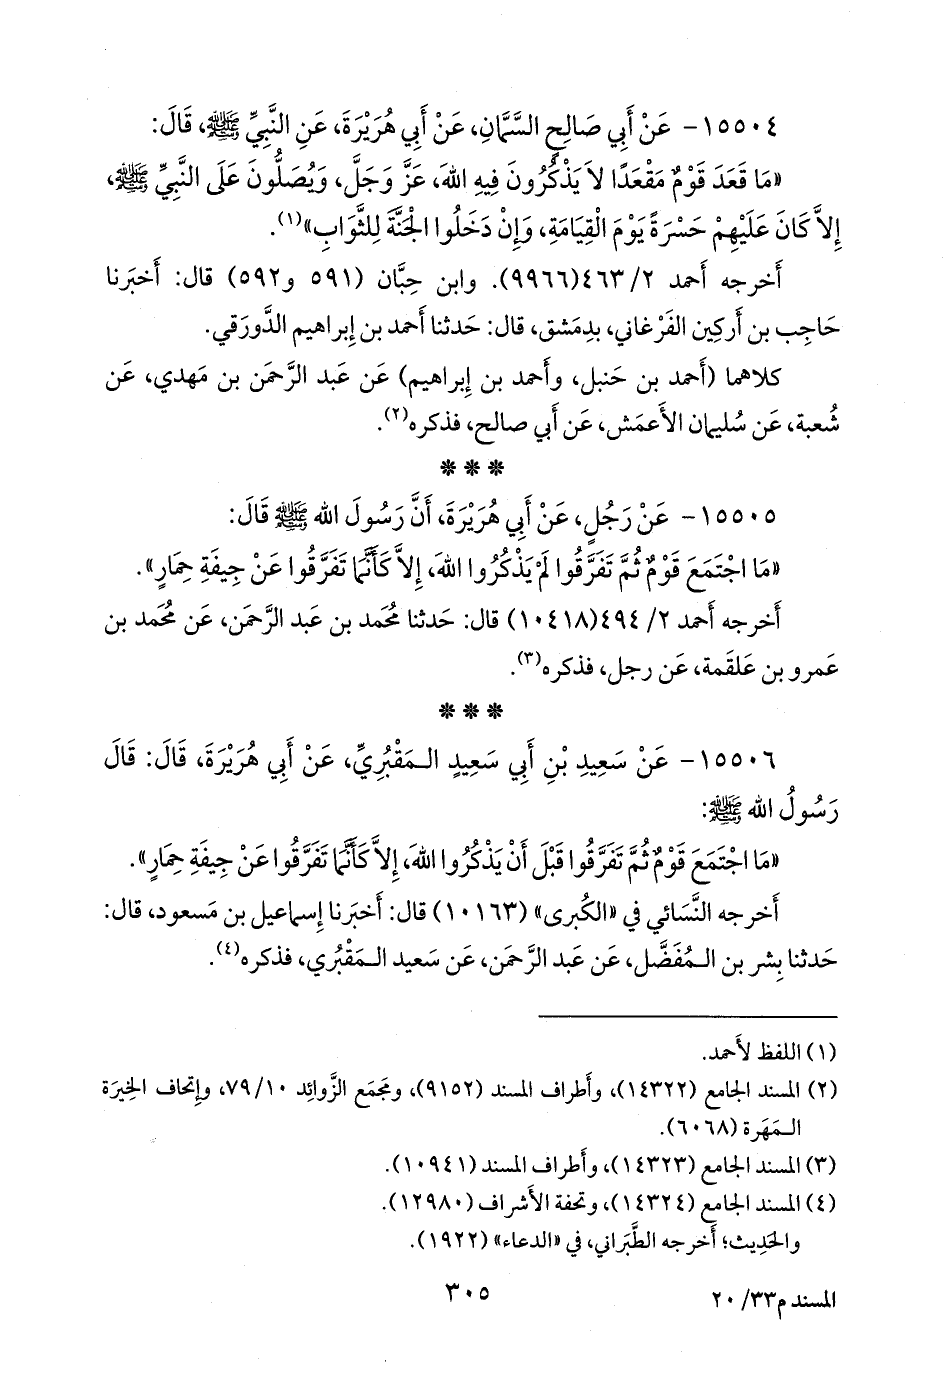 ١٥٥٠٤- عَنْ أَبِي صَالِحٍ السَّمَّانِ، عَنْ أَبِي هُرَيْرَةَ، عَنِ النَّبِيِّ ﷺ، قَالَ:
«مَا قَعَدَ قَوْمٌ مَقْعَدًا لَا يَذْكُرُونَ فِيهِ اللهَ، عَزَّ وَجَلَّ، وَيُصَلُّونَ عَلَى النَّبِيِّ ﷺ،
إِلاَّ كَانَ عَلَيْهِمْ حَسْرَةً يَوْمَ الْقِيَامَةِ، وَإِنْ دَخَلُوا الْجَنَّةَ لِلثَّوَابِ»(١).
أَخرجه أَحمد ٢/ ٤٦٣(٩٩٦٦). وابن حِبَّان (٥٩١ و٥٩٢) قال: أَخبَرنا
حَاجِب بن أَركِين الفَرْغاني، بدِمَشق، قال: حَدثنا أَحمد بن إِبراهيم الدَّورَقي.
كلاهما (أَحمد بن حَنبل، وأَحمد بن إِبراهيم) عَن عَبد الرَّحمَن بن مَهدي، عَن
شُعبة، عَن سُليمان الأَعمَش، عَن أَبي صالح، فذكره(٢).
* * *
١٥٥٠٥- عَنْ رَجُلٍ، عَنْ أَبِي هُرَيْرَةَ، أَنَّ رَسُولَ اللهِ ﷺ قَالَ:
«مَا اجْتَمَعَ قَوْمٌ ثُمَّ تَفَرَّقُوا لَمْ يَذْكُرُوا اللهَ، إِلاَّ كَأَنَّمَا تَفَرَّقُوا عَنْ جِيفَةِ حِمَارٍ».
أَخرجه أَحمد ٢/ ٤٩٤(١٠٤١٨) قال: حَدثنا مُحمد بن عَبد الرَّحمَن، عَن مُحمد بن
عَمرو بن عَلقمة، عَن رجل، فذكره(٣).
* * *
١٥٥٠٦- عَنْ سَعِيدِ بْنِ أَبِي سَعِيدٍ الـمَقْبُرِيِّ، عَنْ أَبِي هُرَيْرَةَ، قَالَ: قَالَ
رَسُولُ اللهِ ﷺ:
«مَا اجْتَمَعَ قَوْمٌ ثُمَّ تَفَرَّقُوا قَبْلَ أَنْ يَذْكُرُوا اللهَ، إِلاَّ كَأَنَّمَا تَفَرَّقُوا عَنْ جِيفَةِ حِمَارٍ».
أَخرجه النَّسَائي في «الكُبرى» (١٠١٦٣) قال: أَخبَرنا إِسماعيل بن مَسعود، قال:
حَدثنا بِشر بن الـمُفَضَّل، عَن عَبد الرَّحمَن، عَن سَعيد الـمَقْبُري، فذكره(٤).
(١) اللفظ لأَحمد.
(٢) المسند الجامع (١٤٣٢٢)، وأَطراف المسند (٩١٥٢)، ومَجمَع الزَّوائِد ١٠/ ٧٩، وإِتحاف الخِيرَة
الـمَهَرة (٦٠٦٨).
(٣) المسند الجامع (١٤٣٢٣)، وأَطراف المسند (١٠٩٤١).
(٤) المسند الجامع (١٤٣٢٤)، وتحفة الأَشراف (١٢٩٨٠).
والحَدِيث؛ أَخرجه الطَّبَراني، في «الدعاء» (١٩٢٢).
٣٠٥
المسند م٣٣/ ٢٠